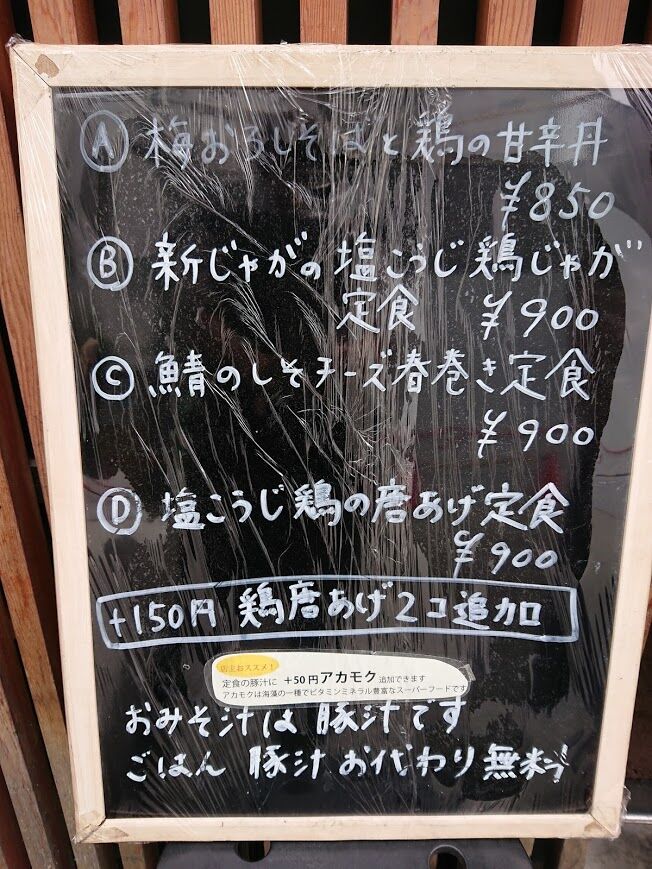 Ⓐ 梅おろしそばと鶏の甘辛丼
¥850
Ⓑ 新じゃがの塩こうじ鶏じゃが
定食 ¥900
Ⓒ 鯖のしそチーズ春巻き定食
¥900
Ⓓ 塩こうじ鶏の唐あげ定食
¥900
+150円 鶏唐あげ2コ追加
店主おススメ!
定食の豚汁に +50円アカモク追加できます
アカモクは海藻の一種でビタミンミネラル豊富なスーパーフードです
おみそ汁は豚汁です
ごはん 豚汁 お代わり無料